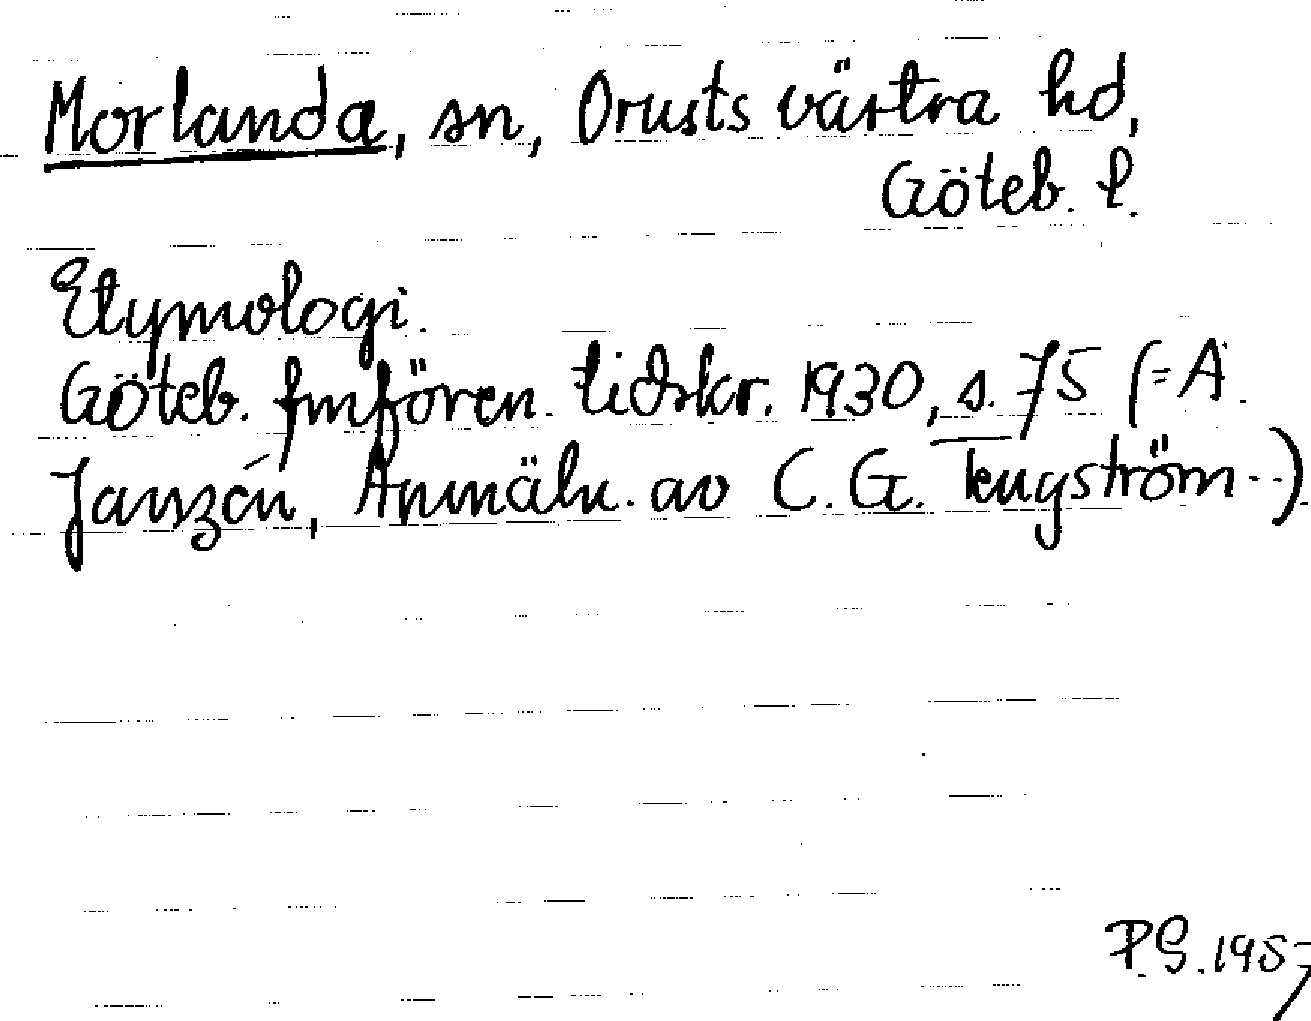 Morlanda, sn, Orusts västra hd,
Göteb. l.
Etymologi.
Göteb. fmfören. tidskr. 1930, s. 75 (= A.
Janzén, Anmäln. av C. G. Tengström..).
P.G. 1957